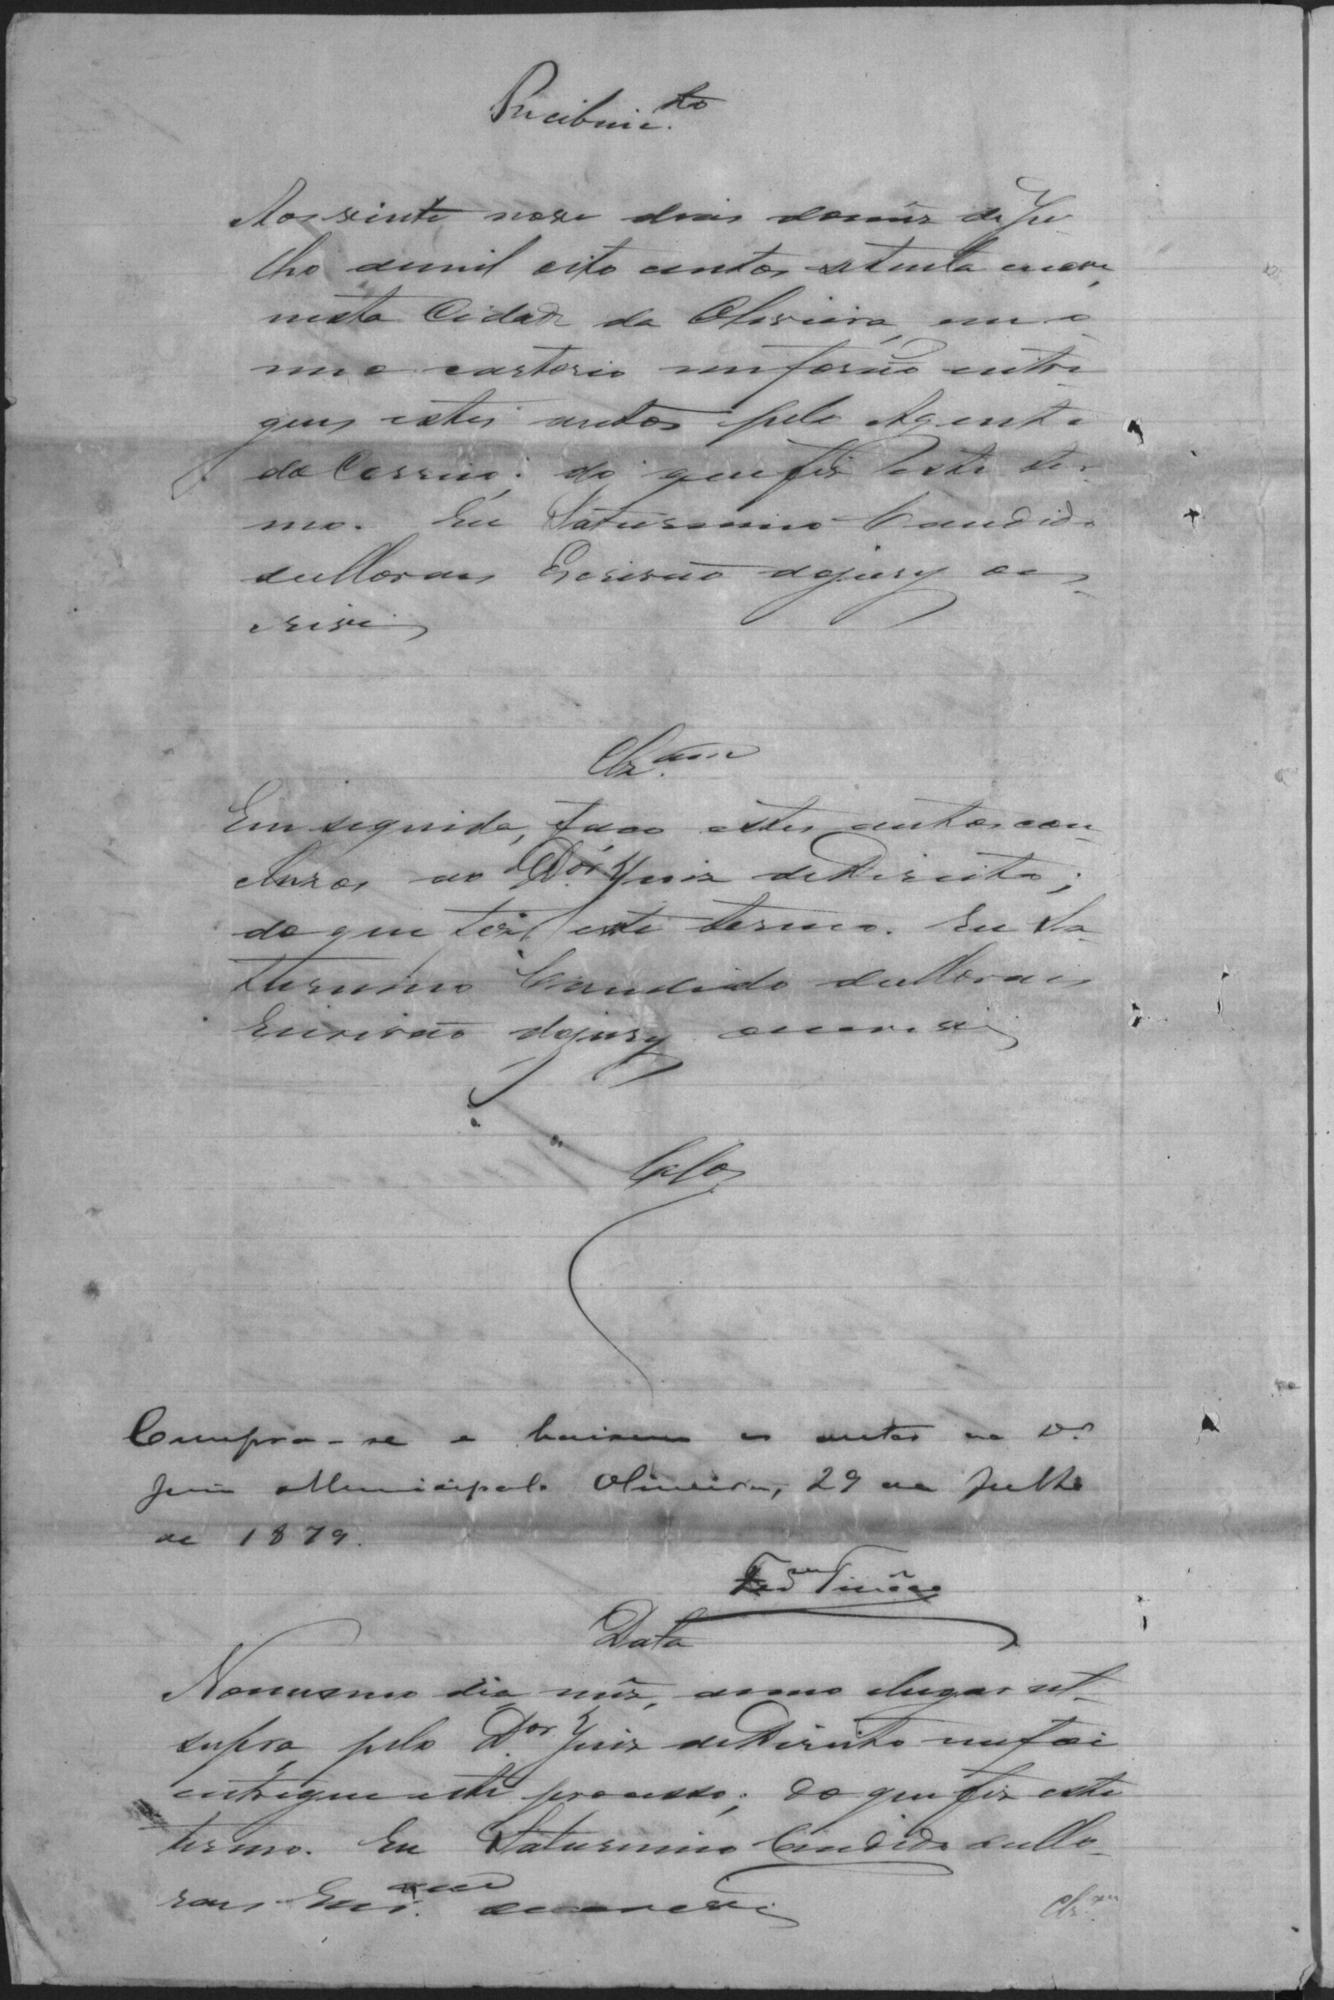 Recebime.to
Aos vinte nove dias do mêz de Ju-
lho de mil oito centos setenta e nove,
nesta Cidade da Oliveira, em o
meu cartorio me forão entre
gues estes autos pelo Agente
do Correio; do que fiz este ter-
mo. Eu Saturnino Candido
de Moraes Escrivão do jury o es-
crevi
Clz.am
Em seguida, faço estes autos con-
cluzos ao D.or Juiz de Direito;
do que fiz este termo. Eu Sa-
turnino Candido de Moraes
Escrivão do jury o escrevi
Clos
Cumpra-se e baixem os autos ao D.r
Juiz Municipal. Oliveira, 29 de Julho
de 1879.
Data
No mesmo dia, mêz, anno e lugar ut-
supra, pelo D.or Juiz de Direito me foi
entregue este processo; do que fiz este
termo. Eu Saturnino Candido de Mo-
raes Escr.am o escrevi
Clz.am